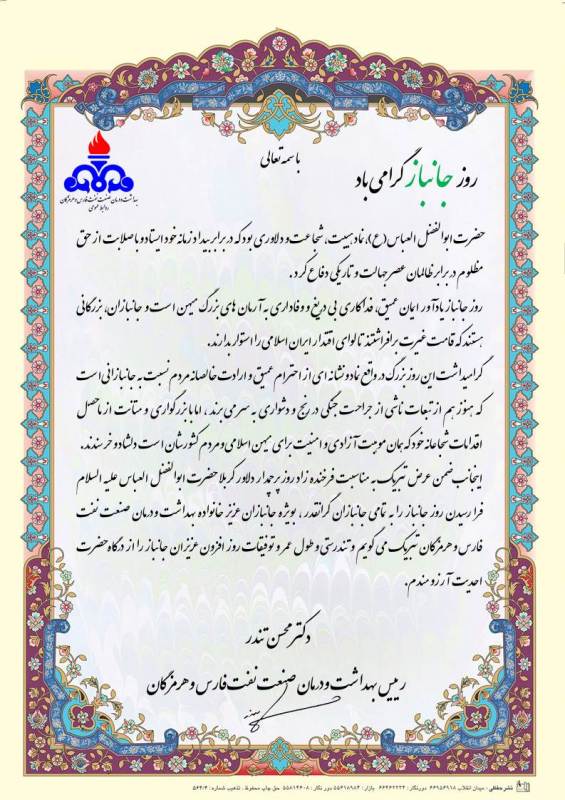 باسمه تعالی
روز جانباز گرامی باد
بهداشت و درمان صنعت نفت فارس و هرمزگان
روابط عمومی
حضرت ابوالفضل العباس (ع)، نماد هیبت، شجاعت و دلاوری بود که در برابر بیداد زمانه خود ایستاد و با صلابت از حق
مظلوم در برابر ظالمان عصر جهالت و تاریکی دفاع کرد.
روز جانباز یادآور ایمان عمیق، فداکاری بی دریغ و وفاداری به آرمان های بزرگ میهن است و جانبازان، بزرگانی
هستند که قامت غیرت برافراشتند تا لوای اقتدار ایران اسلامی را استوار بدارند.
گرامیداشت این روز بزرگ در واقع نماد و نشانه ای از احترام عمیق و ارادت خالصانه مردم نسبت به جانبازانی است
که هنوز هم از تبعات ناشی از جراحت جنگی در رنج و دشواری به سر می برند، اما با بزرگواری و متانت از ماحصل
اقدامات شجاعانه خود که همان موهبت آزادی و امنیت برای میهن اسلامی و مردم کشورشان است دلشاد و خرسندند.
اینجانب ضمن عرض تبریک به مناسبت فرخنده زادروز پرچمدار دلاور کربلا حضرت ابوالفضل العباس علیه السلام
فرا رسیدن روز جانباز را به تمامی جانبازان گرانقدر، بویژه جانبازان عزیز خانواده بهداشت و درمان صنعت نفت
فارس و هرمزگان تبریک می گویم و تندرستی و طول عمر و توفیقات روز افزون عزیزان جانباز را از درگاه حضرت
احدیت آرزومندم.
دکتر محسن تندر
رییس بهداشت و درمان صنعت نفت فارس و هرمزگان
نشر حقانی: میدان انقلاب ۶۶۹۵۶۹۱۸ دورنگار: ۶۶۴۶۲۲۲۴ بازار: ۵۵۶۱۸۹۸۴ دورنگار: ۵۵۸۱۴۶۰۸ حق چاپ محفوظ. تذهیب شماره: ۵۶۴/۴